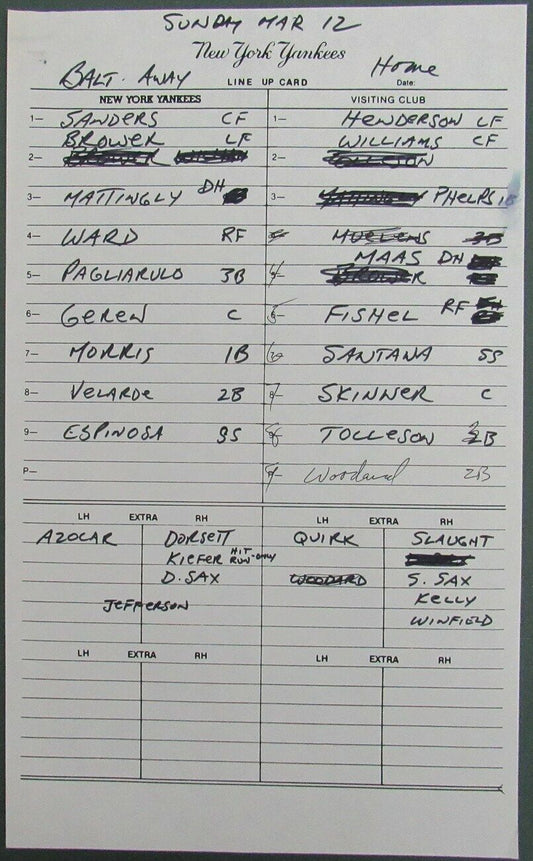 SUNDAY MAR 12
New York Yankees
BALT. AWAY LINE UP CARD Home
Date:
NEW YORK YANKEES VISITING CLUB
1— SANDERS CF 1— HENDERSON LF
BROWER LF WILLIAMS CF
2— 2— TOLLESON
3— MATTINGLY DH 3— PHELPS 1B
4— WARD RF 4— MUELENS 3B
MAAS DH
5— PAGLIARULO 3B 4- BROWER
6— GEREN C 5- FISHEL RF
7— MORRIS 1B 6- SANTANA SS
8— VELARDE 2B 7- SKINNER C
9— ESPINOSA SS 8- TOLLESON 3B
P— 9- Woodard 2B
LH EXTRA RH LH EXTRA RH
AZOCAR DORSETT QUIRK SLAUGHT
KIEFER HIT RUN-ONLY
D. SAX WOODARD S. SAX
JEFFERSON KELLY
WINFIELD
LH EXTRA RH LH EXTRA RH